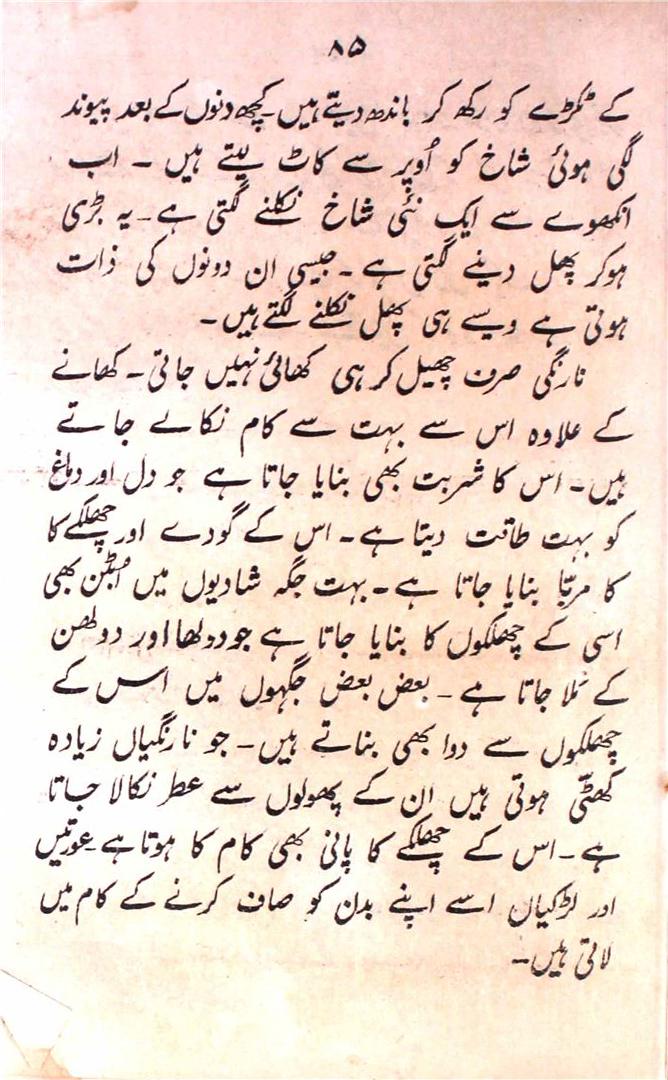 ۸۵
کے ٹکڑے کو رکھ کر باندھ دیتے ہیں۔ کچھ دنوں کے بعد پیوند
لگی ہوئی شاخ کو اُوپر سے کاٹ لیتے ہیں ۔ اب
انکھوے سے ایک نئی شاخ نکلنے لگتی ہے۔ یہ بڑی
ہوکر پھل دینے لگتی ہے ۔ جیسی ان دونوں کی ذات
ہوتی ہے ویسے ہی پھل نکلنے لگتے ہیں ۔
نارنگی صرف چھیل کر ہی کھائی نہیں جاتی ۔ کھانے
کے علاوہ اس سے بہت سے کام نکالے جاتے
ہیں ۔ اس کا شربت بھی بنایا جاتا ہے جو دل اور دماغ
کو بہت طاقت دیتا ہے ۔ اس کے گودے اور چھلکے کا
کا مربّا بنایا جاتا ہے ۔ بہت جگہ شادیوں میں اُبٹن بھی
اسی کے چھلکوں کا بنایا جاتا ہے جو دولھا اور دولھن
کے مَلا جاتا ہے ۔ بعض بعض جگہوں میں اس کے
چھلکوں سے دوا بھی بناتے ہیں ۔ جو نارنگیاں زیادہ
کھٹّی ہوتی ہیں ان کے پھولوں سے عطر نکالا جاتا
ہے ۔ اس کے چھلکے کا پانی بھی کام کا ہوتا ہے ۔ عورتیں
اور لڑکیاں اسے اپنے بدن کو صاف کرنے کے کام میں
لاتی ہیں ۔